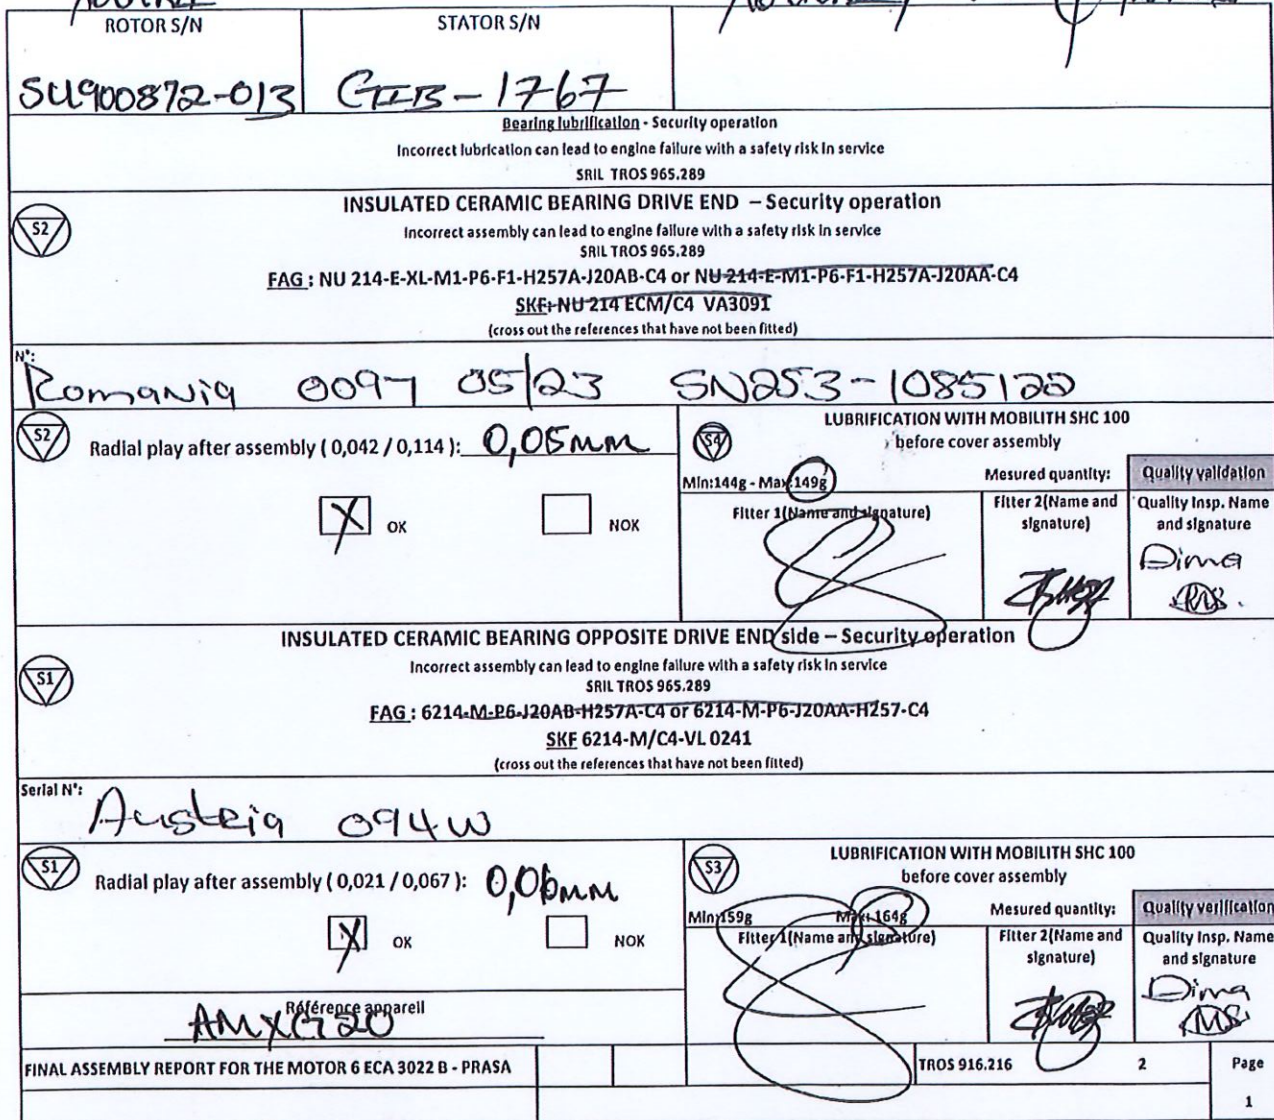 ROTOR S/N STATOR S/N
SU900872-013 GIIB-1767
Bearing lubrification - Security operation
Incorrect lubrication can lead to engine failure with a safety risk in service
SRIL TROS 965.289
S2
INSULATED CERAMIC BEARING DRIVE END – Security operation
Incorrect assembly can lead to engine failure with a safety risk in service
SRIL TROS 965.289
FAG : NU 214-E-XL-M1-P6-F1-H257A-J20AB-C4 or NU-214-E-M1-P6-F1-H257A-J20AA-C4
SKF: NU 214 ECM/C4 VA3091
(cross out the references that have not been fitted)
N°:
Romania 0097 05/23 SN253-1085122
S2
Radial play after assembly ( 0,042 / 0,114 ): 0,05mm
X OK NOK
S4
LUBRIFICATION WITH MOBILITH SHC 100
before cover assembly
Min:144g - Max:149g Mesured quantity: Quality validation
Fitter 1(Name and signature) Fitter 2(Name and signature) Quality Insp. Name and signature
Dima
INSULATED CERAMIC BEARING OPPOSITE DRIVE END side – Security operation
S1
Incorrect assembly can lead to engine failure with a safety risk in service
SRIL TROS 965.289
FAG : 6214-M-P6-J20AB-H257A-C4 or 6214-M-P6-J20AA-H257-C4
SKF 6214-M/C4-VL 0241
(cross out the references that have not been fitted)
Serial N°:
Austria 094W
S1
Radial play after assembly ( 0,021 / 0,067 ): 0,06mm
X OK NOK
Référence appareil
AMXG20
S3
LUBRIFICATION WITH MOBILITH SHC 100
before cover assembly
Min:159g Max: 164g Mesured quantity: Quality verification
Fitter 1(Name and signature) Fitter 2(Name and signature) Quality Insp. Name and signature
Dima
FINAL ASSEMBLY REPORT FOR THE MOTOR 6 ECA 3022 B - PRASA TROS 916.216 2 Page
1